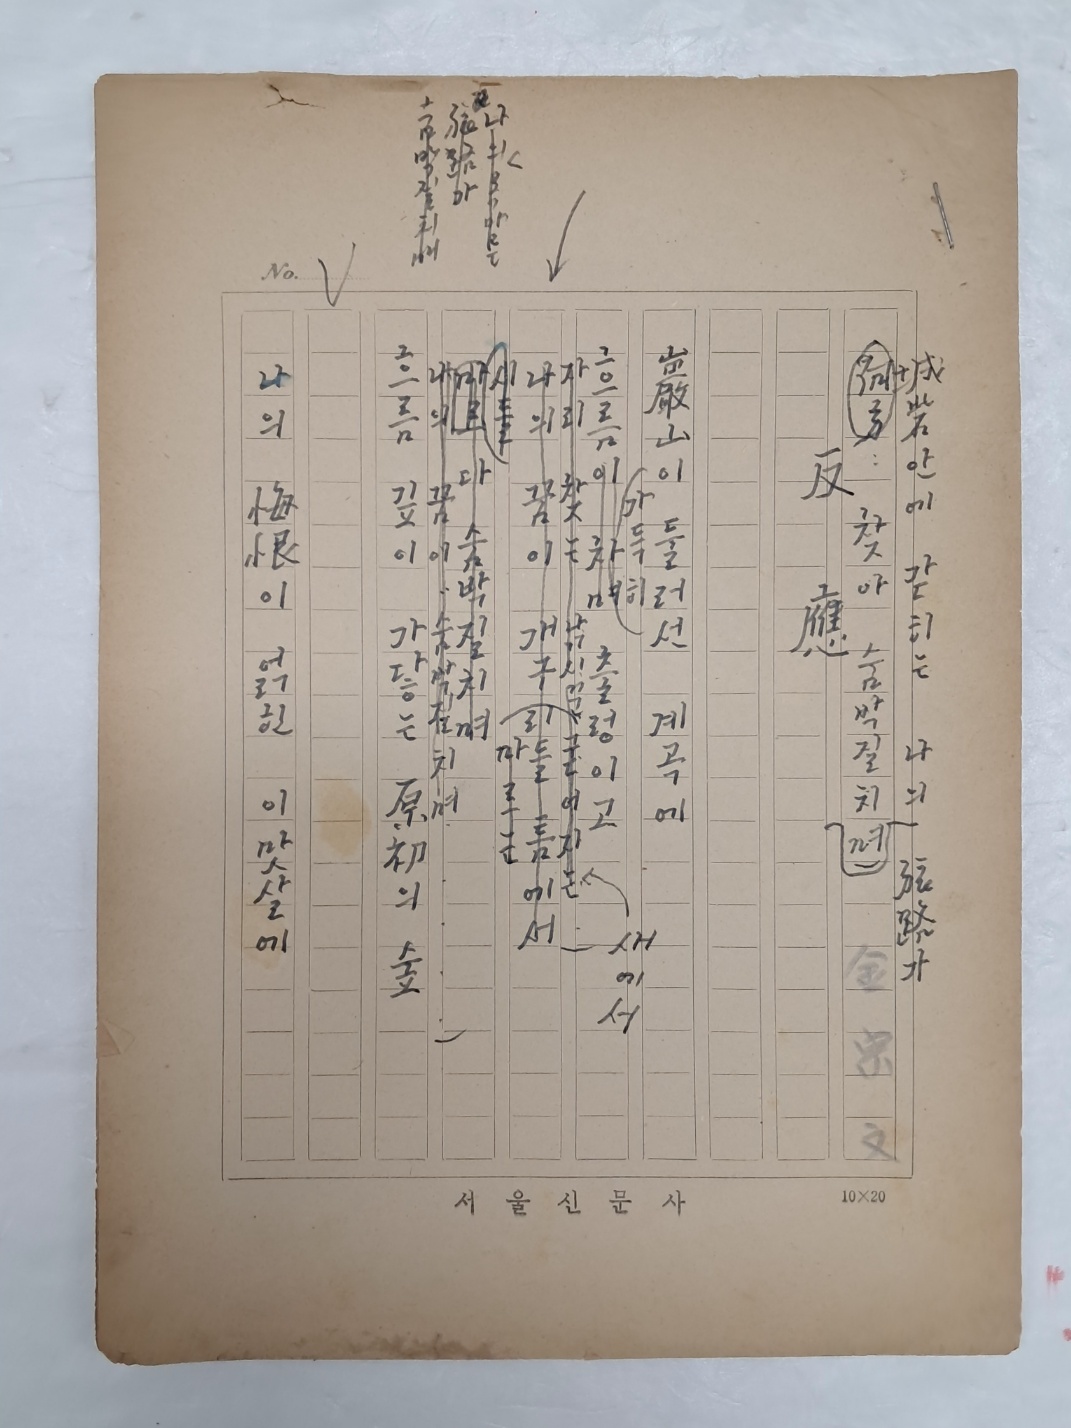 城岩안에 갇히는 나의 弦路가
찾아 숨박질치며
金宗文
反應
巌山이 둘러선 계곡에
가득히
흐름이 차며 출렁이고
새에서
자리 찾는
나의 꿈이 개구리들 틈에서
마루는
시들
따르다 숨박질치며
나의 꿈이 숨박질치며
흐름 깊이 가닿는 原初의 숲
나의 悔恨이 얽힌 이맛살에
나의
弦路가
숨박질치며
No.
서울신문사
10×20